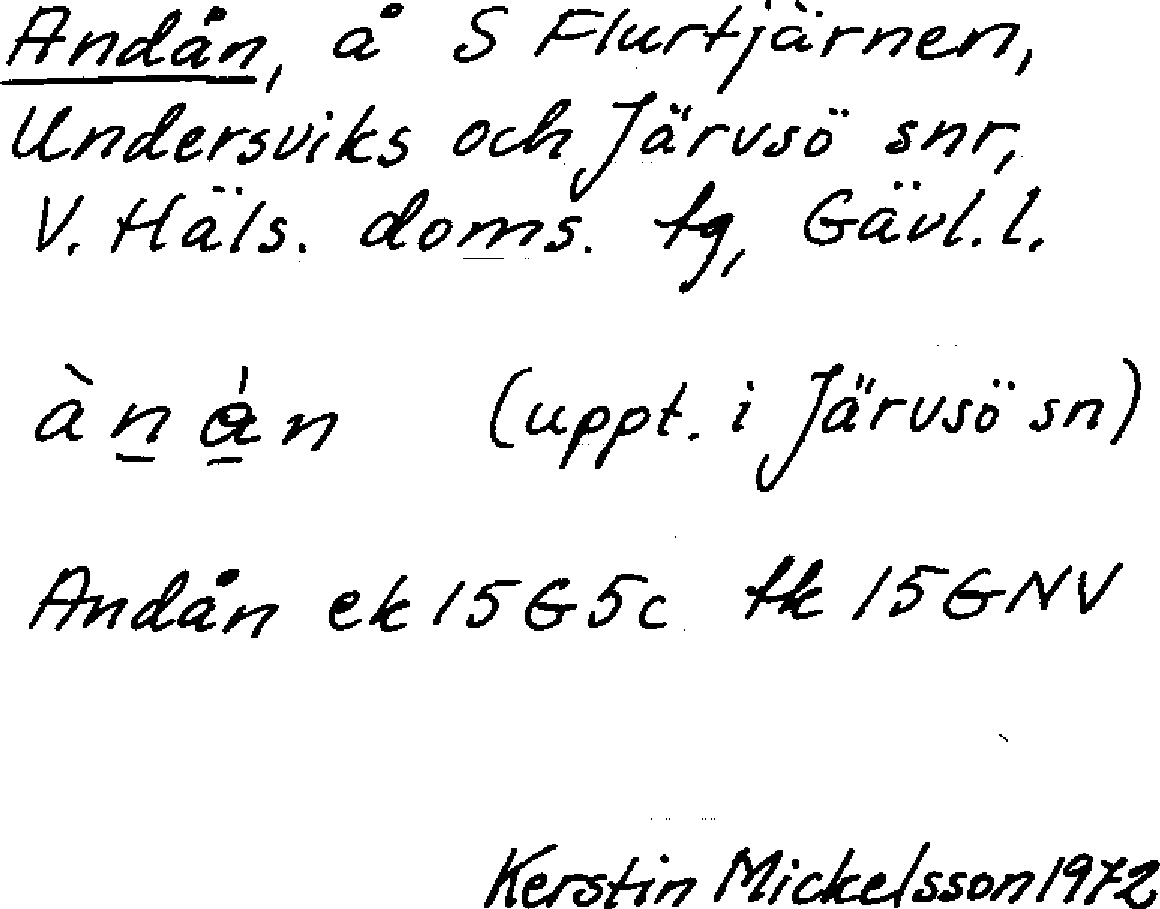 Andån, å S Flurtjärnen,
Undersviks och Järvsö snr,
V. Häls. doms. tg, Gävl. l.
àn̲ǻ̲n (uppt. i Järvsö sn)
Andån ek 15G5c tk 15GNV
Kerstin Mickelsson 1972